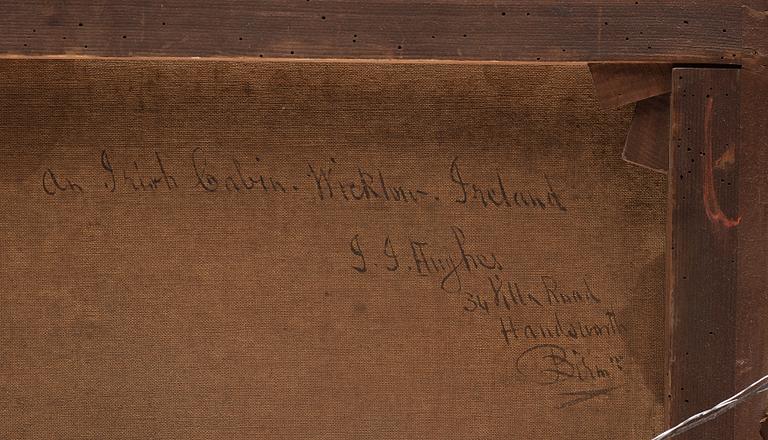 An Irish Cabin. Wicklow. Ireland
J. J. Hughes
34 Villa Road
Handsworth
Birmm